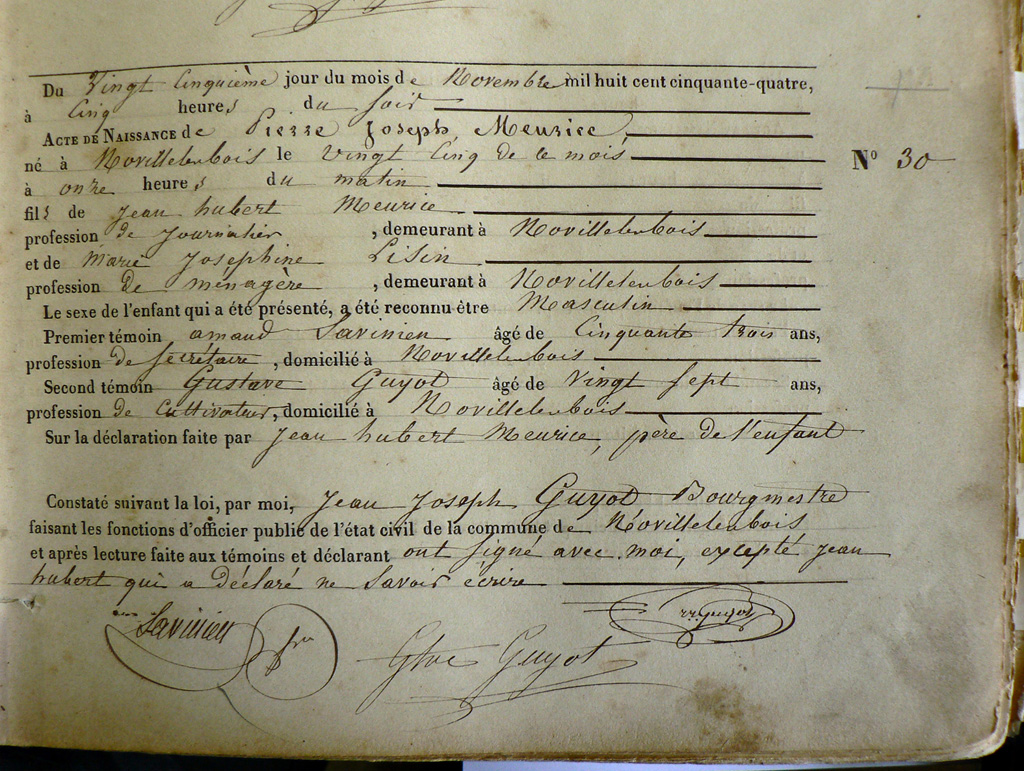 Du Vingt Cinquième jour du mois de Novembre mil huit cent cinquante-quatre,
à Cinq heures du soir
ACTE DE NAISSANCE de Pierre Joseph, Meurice,
né à Novillelesbois le vingt cinq de ce mois
Nº 30
à onze heures du matin
fils de Jean hubert Meurice
profession de Journalier, demeurant à Novillelesbois
et de Marie Josephine Lisin
profession de ménagère, demeurant à Novillelesbois
Le sexe de l'enfant qui a été présenté, a été reconnu être Masculin
Premier témoin amand Savinien âgé de Cinquante trois ans,
profession de Secrétaire, domicilié à Novillelesbois
Second témoin Gustave Guyot âgé de Vingt sept ans,
profession de Cultivateur, domicilié à Novillelesbois
Sur la déclaration faite par Jean hubert Meurice, père de l'enfant
Constaté suivant la loi, par moi, Jean Joseph Guyot Bourgmestre
faisant les fonctions d'officier public de l'état civil de la commune de Novillelesbois
et après lecture faite aux témoins et déclarant ont signé avec moi, excepté Jean
hubert qui a déclaré ne savoir écrire
Savinien
Guyot
Gve Guyot